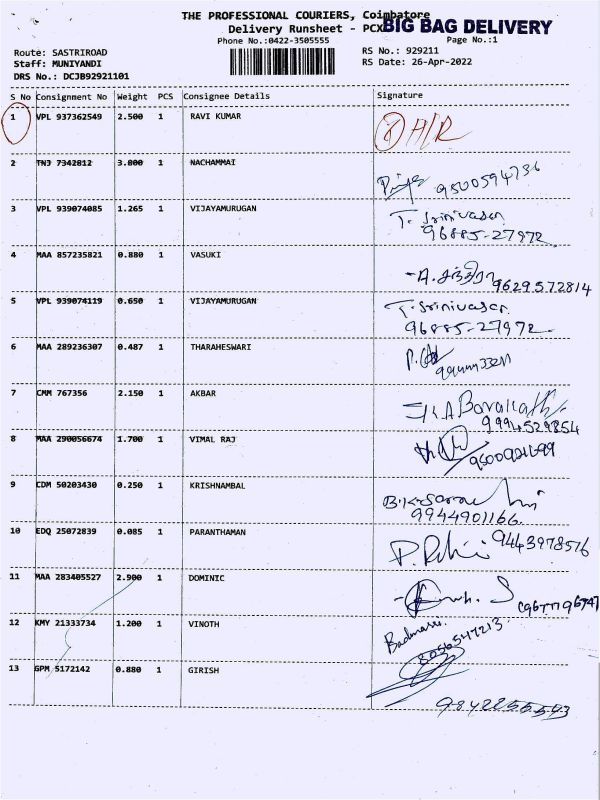 THE PROFESSIONAL COURIERS, Coimbatore
Delivery Runsheet - PCX BIG BAG DELIVERY
Phone No.:0422-3505555 Page No.:1
Route: SASTRIROAD RS No.: 929211
Staff: MUNIYANDI RS Date: 26-Apr-2022
DRS No.: DCJB92921101
S No Consignment No Weight PCS Consignee Details Signature
1 VPL 937362549 2.500 1 RAVI KUMAR A/R
2 TNJ 7342812 3.800 1 NACHAMMAI Priya 9500594736
3 VPL 939074085 1.265 1 VIJAYAMURUGAN T. Srinivasan
96885-27972
4 MAA 857235821 0.880 1 VASUKI A. 9629572814
5 VPL 939074119 0.650 1 VIJAYAMURUGAN T. Srinivasan
96885-27972
6 MAA 289236307 0.487 1 THARAHESWARI
7 CMM 767356 2.150 1 AKBAR
9994529854
8 MAA 290056674 1.700 1 VIMAL RAJ
9 CDM 50203430 0.250 1 KRISHNAMBAL
9944901166
10 EDQ 25072839 0.085 1 PARANTHAMAN 9443978576
11 MAA 283405527 2.900 1 DOMINIC
12 KMY 21333734 1.200 1 VINOTH
8056547213
13 GPM 5172142 0.880 1 GIRISH